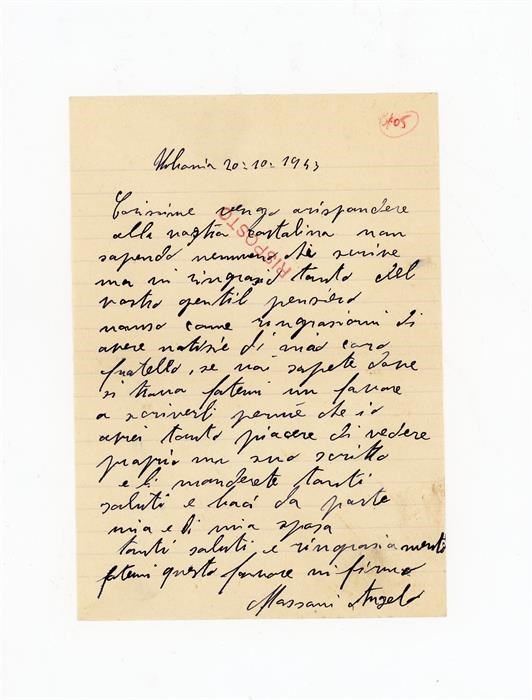 405
Urbania 20-10-1943
Carissimo vengo arispondere
alla vostra cartolina non
RISPOSTO
sapendo nemmeno chi scrive
ma vi ringrazio tanto del
vostro gentil pensiero
nonso come ringrasiarvi di
avere notisie di mio caro
fratello, se voi sapete dove
si trova fatemi un favore
a scriverli perché che io
avrei tanto piacere di vedere
proprio un suo scritto
e li manderete tanti
saluti e baci da parte
mia e di mia sposa
tanti saluti e ringrasiamenti
fatemi questo favore mi firmo
Massani Angelo